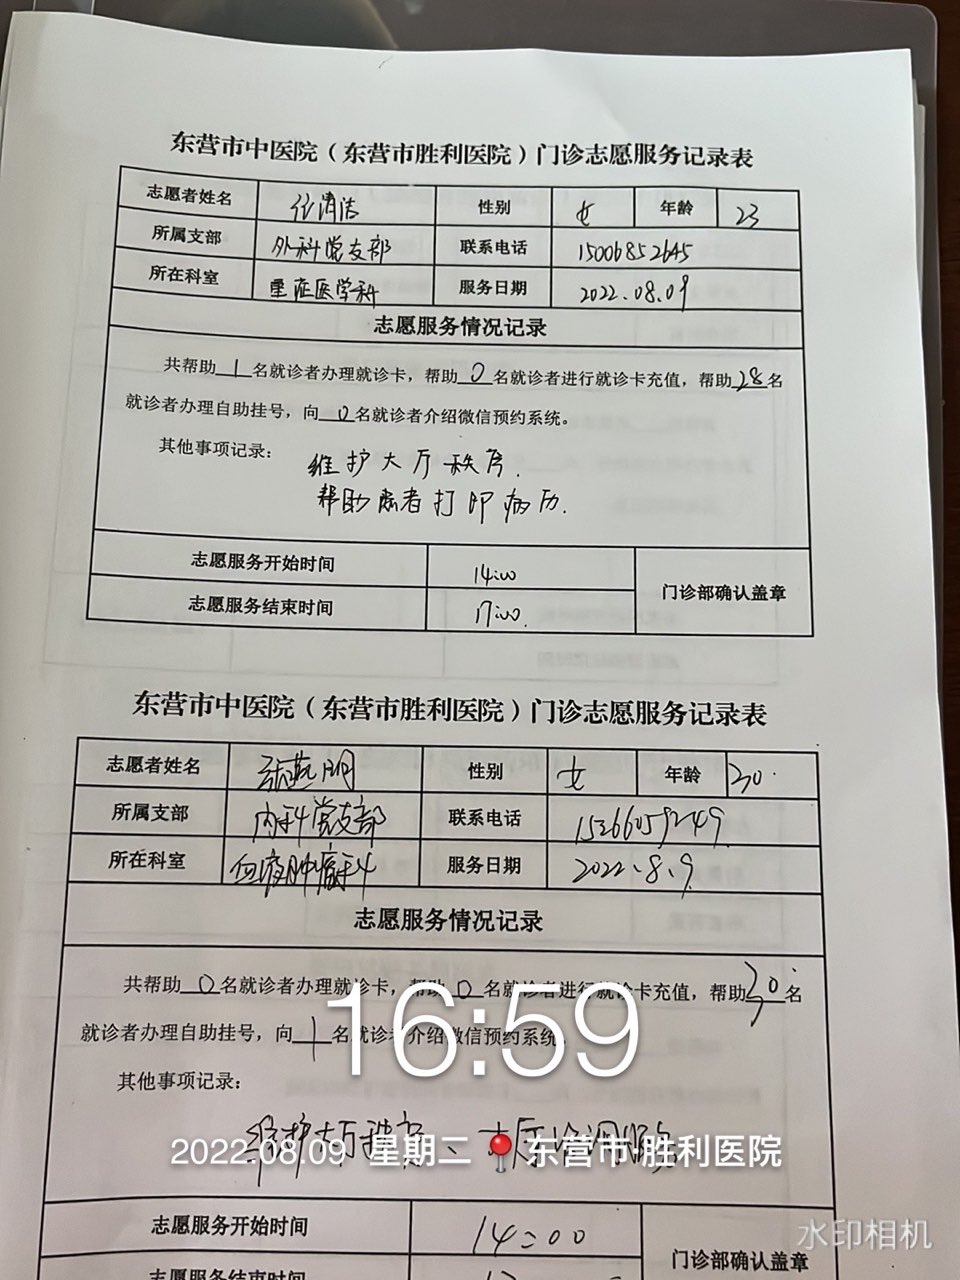 东营市中医院（东营市胜利医院）门诊志愿服务记录表
志愿者姓名 任清洁 性别 女 年龄 23
所属支部 外科党支部 联系电话 15006852645
所在科室 重症医学科 服务日期 2022.08.09
志愿服务情况记录
共帮助1名就诊者办理就诊卡，帮助0名就诊者进行就诊卡充值，帮助28名
就诊者办理自助挂号，向0名就诊者介绍微信预约系统。
其他事项记录：
维护大厅秩序.
帮助患者打印病历.
志愿服务开始时间 14:00
门诊部确认盖章
志愿服务结束时间 17:00.
东营市中医院（东营市胜利医院）门诊志愿服务记录表
志愿者姓名 张燕明 性别 女 年龄 30
所属支部 内科党支部 联系电话 15266059249
所在科室 血液肿瘤科 服务日期 2022.8.9
志愿服务情况记录
共帮助0名就诊者办理就诊卡，帮助0名就诊者进行就诊卡充值，帮助30名
就诊者办理自助挂号，向1名就诊者介绍微信预约系统
16:59
其他事项记录：
维护大厅秩序、
2022.08.09 星期二 东营市·胜利医院
志愿服务开始时间 14:00
水印相机
门诊部确认盖章
志愿服务结束时间